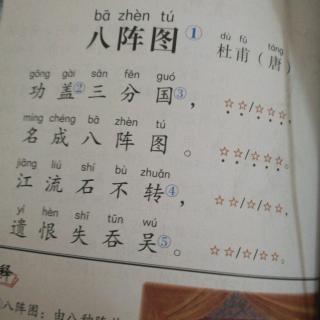 bā zhèn tú
八阵图①
dù fǔ táng
杜甫（唐）
gōng gài sān fēn guó
功盖②三分国③，☆☆/☆/☆☆
míng chéng bā zhèn tú
名成八阵图。☆☆/☆☆☆
jiāng liú shí bù zhuǎn
江流石不转④，☆☆/☆/☆☆
yí hèn shī tūn wú
遗恨失吞吴⑤。☆☆/☆/☆☆
释
八阵图：由八种阵